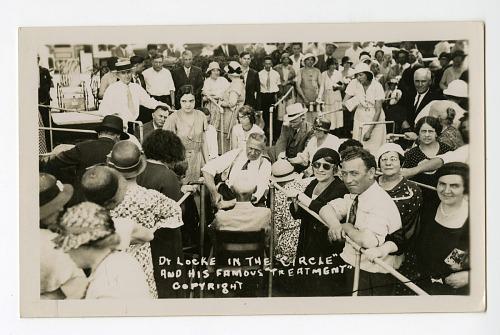 DR LOCKE IN THE "CIRCLE"
AND HIS FAMOUS "TREATMENT"
COPYRIGHT